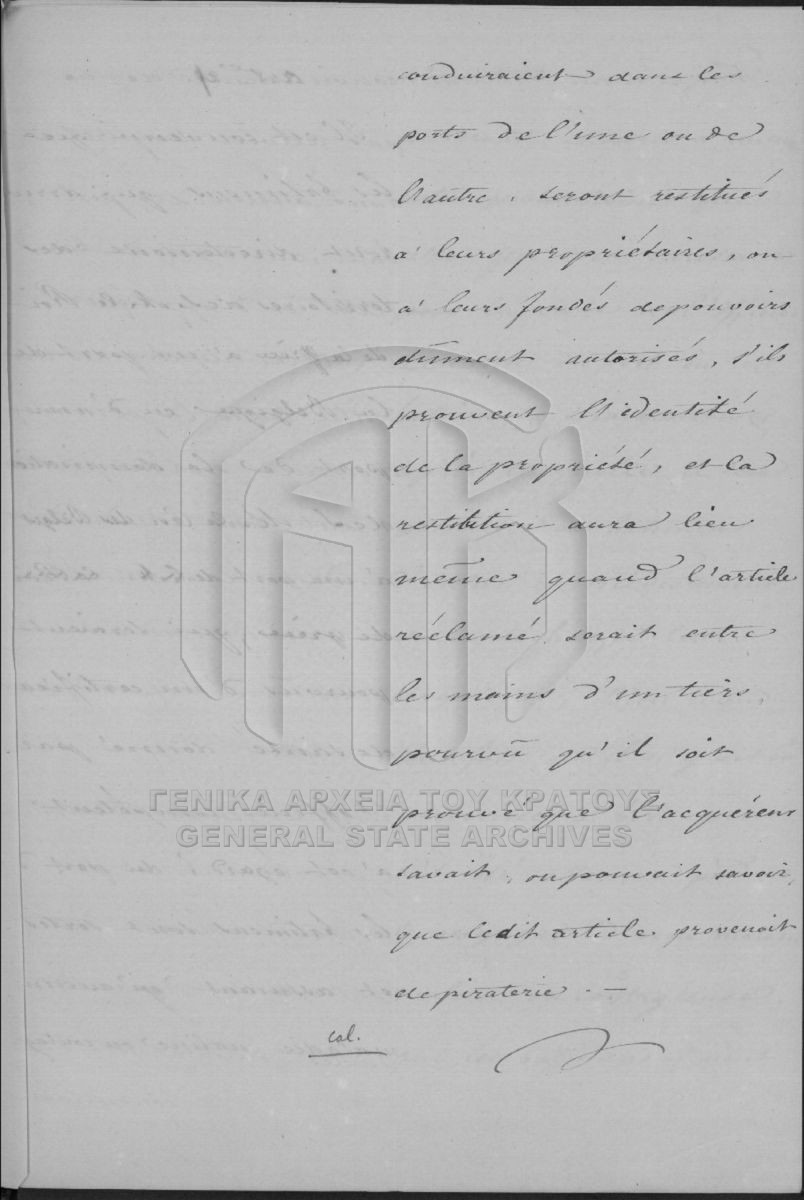 conduiraient dans les
ports de l'une ou de
l'autre, seront restitués
à leurs propriétaires, ou
à leurs fondés de pouvoirs
dûment autorisés, s'ils
prouvent l'identité
de la propriété, et la
restitution aura lieu
même quand l'article
réclamé serait entre
les mains d'un tiers,
pourvû qu'il soit
prouvé que l'acquéreur
savait, ou pouvait savoir,
que ledit article provenoit
de piraterie. —
col.
ΓΕΝΙΚΑ ΑΡΧΕΙΑ ΤΟΥ ΚΡΑΤΟΥΣ
GENERAL STATE ARCHIVES